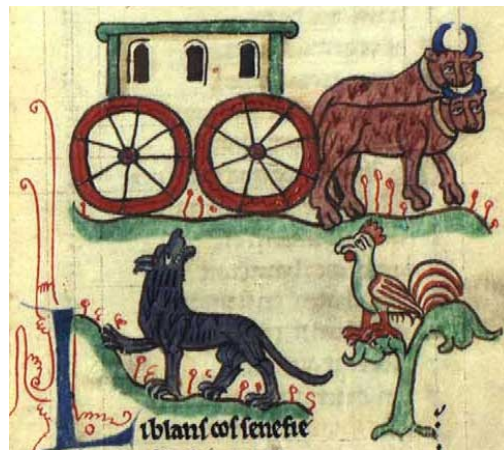 Liblans cos senefie